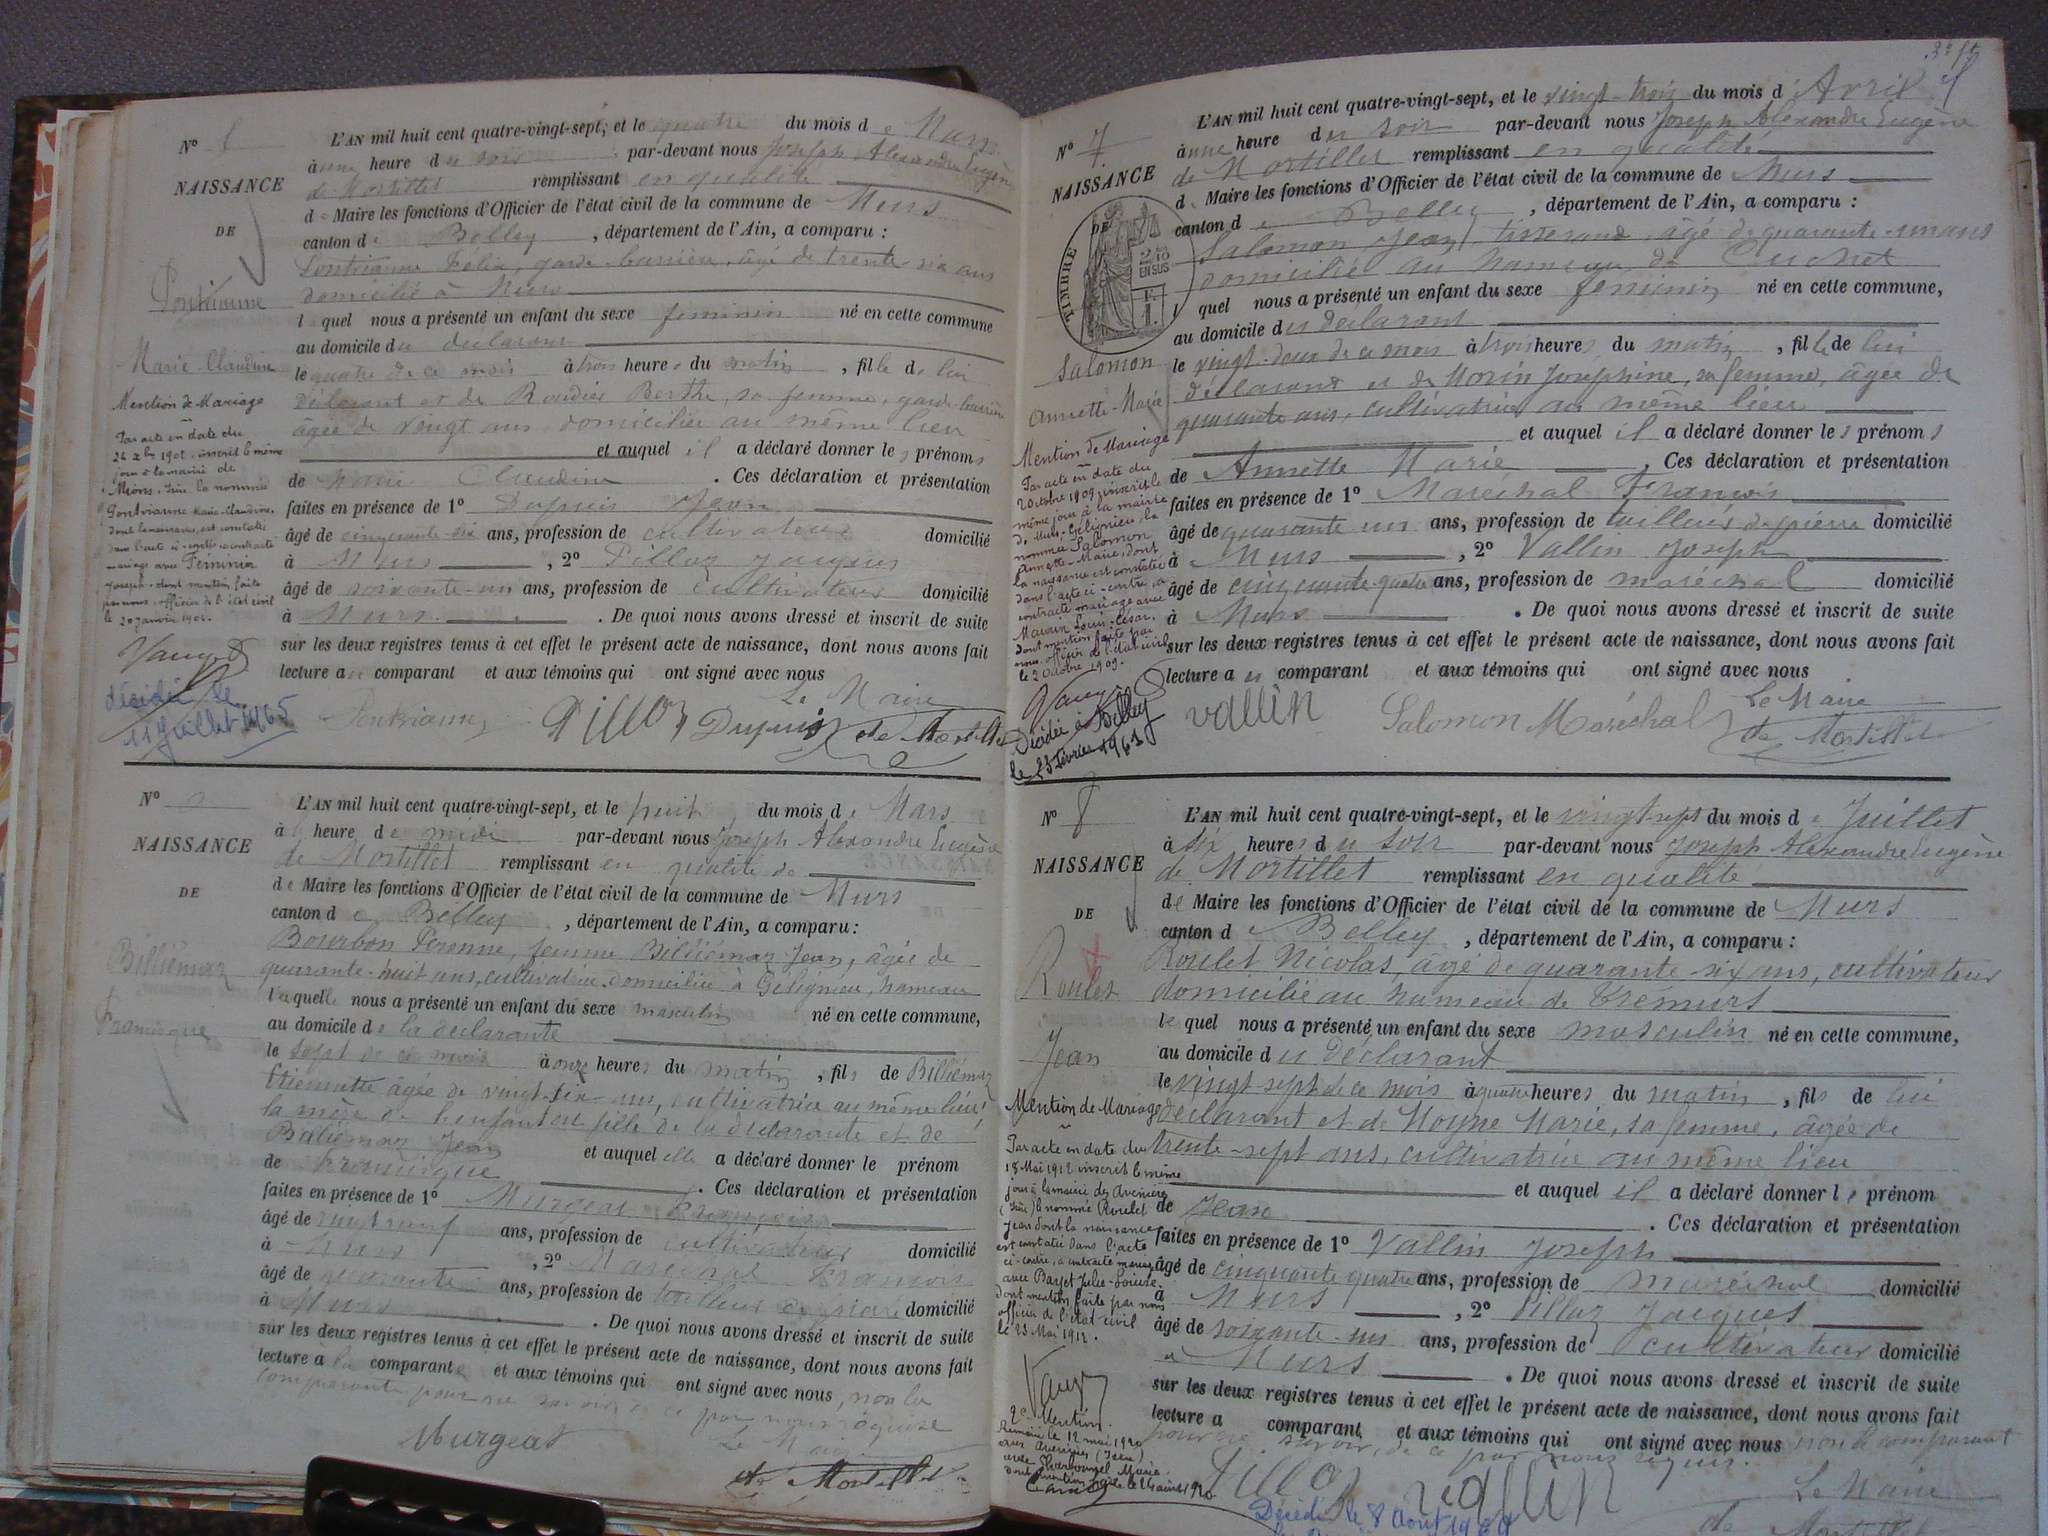 L'AN mil huit cent quatre-vingt-sept, et le quatre du mois de Mars
à une heure du soir par-devant nous Joseph Alexandre Eugène
de Mortillet remplissant en qualité
de Maire les fonctions d'Officier de l'état civil de la commune de Murs
canton de Belley, département de l'Ain, a comparu :
Pontrianne Felix, garde-barrière, âgé de trente-six ans
domicilié à Murs
lequel nous a présenté un enfant du sexe feminin né en cette commune
au domicile du déclarant
le quatre de ce mois à trois heures du matin, fille de lui
déclarant et de Berthe, sa femme, garde-barrière
âgée de vingt ans domiciliée au même lieu
et auquel il a déclaré donner les prénoms
de Marie Claudine. Ces déclaration et présentation
faites en présence de 1º Dupuis Jean
âgé de cinquante-six ans, profession de cultivateur domicilié
à Murs, 2º Pillaz Jacques
âgé de soixante-un ans, profession de cultivateur domicilié
à Murs. De quoi nous avons dressé et inscrit de suite
sur les deux registres tenus à cet effet le présent acte de naissance, dont nous avons fait
lecture au comparant et aux témoins qui ont signé avec nous
Le Maire
Pontrianne Pillaz Dupuis de Mortillet
Nº
NAISSANCE
DE
Pontrianne
Marie-Claudine
Mention de Mariage
Par acte en date du
inscrit le même
jour à la mairie de
la nommée
Pontrianne Marie-Claudine,
dont la naissance est constatée
dans l'acte ci-contre a contracté
mariage avec Féminier
Joseph, dont mention faite
par nous, officier de l'état civil
le 20 janvier
décédée le
11 Juillet 1965
Nº
NAISSANCE
DE
Billiémaz
Framicque
L'AN mil huit cent quatre-vingt-sept, et le huit du mois de Mars
à heure de midi par-devant nous Joseph Alexandre Eugène
de Mortillet remplissant en qualité de
de Maire les fonctions d'Officier de l'état civil de la commune de Murs
canton de Belley, département de l'Ain, a comparu :
Bourbon Péronne, femme Billiémaz Jean, âgée de
quarante-huit ans, cultivatrice domiciliée à Gélignieu, hameau
laquelle nous a présenté un enfant du sexe masculin né en cette commune,
au domicile de la déclarante
le sept de ce mois à onze heures du matin, fils de Billiémaz
Etiennette âgée de vingt-six ans, cultivatrice au même lieu,
la mère de l'enfant est fille de la déclarante et de
Billiémaz Jean et auquel elle a déclaré donner le prénom
de Framicque. Ces déclaration et présentation
faites en présence de 1º Murgeat François
âgé de vingt neuf ans, profession de cultivateur domicilié
à Murs, 2º Maréchal François
âgé de quarante ans, profession de tailleur de pierre domicilié
à Murs. De quoi nous avons dressé et inscrit de suite
sur les deux registres tenus à cet effet le présent acte de naissance, dont nous avons fait
lecture a la comparante et aux témoins qui ont signé avec nous, non la
comparante pour ne savoir de ce par nous requise
Murgeat Le Maire
de Mortillet
Nº 7
NAISSANCE
DE
TIMBRE
EN SUS
Salomon
Annette-Marie
Mention de Mariage
Par acte en date du
2 octobre 1909, inscrit le
même jour à la mairie
de Murs-Gélignieu, la
nommée Salomon
Annette-Marie, dont
la naissance est constatée
dans l'acte ci-contre, a
contracté mariage avec
Maurin Louis-César,
dont mention faite par
nous, officier de l'état civil
le 2 octobre 1909.
Décédée à Belley
le 23 février 1963
L'AN mil huit cent quatre-vingt-sept, et le vingt-trois du mois d'Avril
à une heure du soir par-devant nous Joseph Alexandre Eugène
de Mortillet remplissant en qualité
de Maire les fonctions d'Officier de l'état civil de la commune de Murs
canton de Belley, département de l'Ain, a comparu :
Salomon Jean, tisserand, âgé de quarante-un ans
domicilié au hameau de Cuchet
lequel nous a présenté un enfant du sexe feminin né en cette commune,
au domicile du déclarant
le vingt-deux de ce mois à trois heures du matin, fille de lui
déclarant et de Morin Josephine, sa femme, âgée de
quarante ans, cultivatrice au même lieu
et auquel il a déclaré donner les prénoms
de Annette Marie. Ces déclaration et présentation
faites en présence de 1º Maréchal François
âgé de quarante un ans, profession de tailleur de pierre domicilié
à Murs, 2º Vallin Joseph
âgé de cinquante-quatre ans, profession de maréchal domicilié
à Murs. De quoi nous avons dressé et inscrit de suite
sur les deux registres tenus à cet effet le présent acte de naissance, dont nous avons fait
lecture au comparant et aux témoins qui ont signé avec nous
Le Maire
Vallin Salomon Maréchal de Mortillet
Nº 8
NAISSANCE
DE
Roulet
Jean
Mention de Mariage
Par acte en date du
18 Mai 1912 inscrit le même
jour à la mairie des Avenières
(Isère) le nommé Roulet
Jean dont la naissance
est constatée dans l'acte
ci-contre, a contracté mariage
avec Barjet Julie-Louise.
dont mention faite par nous
officier de l'état civil
le 23 Mai 1912.
2e Mention.
Remarié le 12 mai 1920
aux Avenières (Isère)
avec Marie.
dont mention
L'AN mil huit cent quatre-vingt-sept, et le vingt-sept du mois de Juillet
à six heures du soir par-devant nous Joseph Alexandre Eugène
de Mortillet remplissant en qualité
de Maire les fonctions d'Officier de l'état civil de la commune de Murs
canton de Belley, département de l'Ain, a comparu :
Roulet Nicolas, âgé de quarante-six ans, cultivateur
domicilié au hameau de Trémurs
lequel nous a présenté un enfant du sexe masculin né en cette commune,
au domicile du déclarant
le vingt-sept de ce mois à quatre heures du matin, fils de lui
déclarant et de Moyne Marie, sa femme, âgée de
trente-sept ans, cultivatrice au même lieu
et auquel il a déclaré donner le prénom
de Jean. Ces déclaration et présentation
faites en présence de 1º Vallin Joseph
âgé de cinquante quatre ans, profession de maréchal domicilié
à Murs, 2º Pillaz Jacques
âgé de soixante-un ans, profession de cultivateur domicilié
à Murs. De quoi nous avons dressé et inscrit de suite
sur les deux registres tenus à cet effet le présent acte de naissance, dont nous avons fait
lecture a comparant et aux témoins qui ont signé avec nous non le comparant
pour ne savoir, de ce par nous requis.
Pillaz Vallin Le Maire
de Mortillet
Décédé le 8 Août